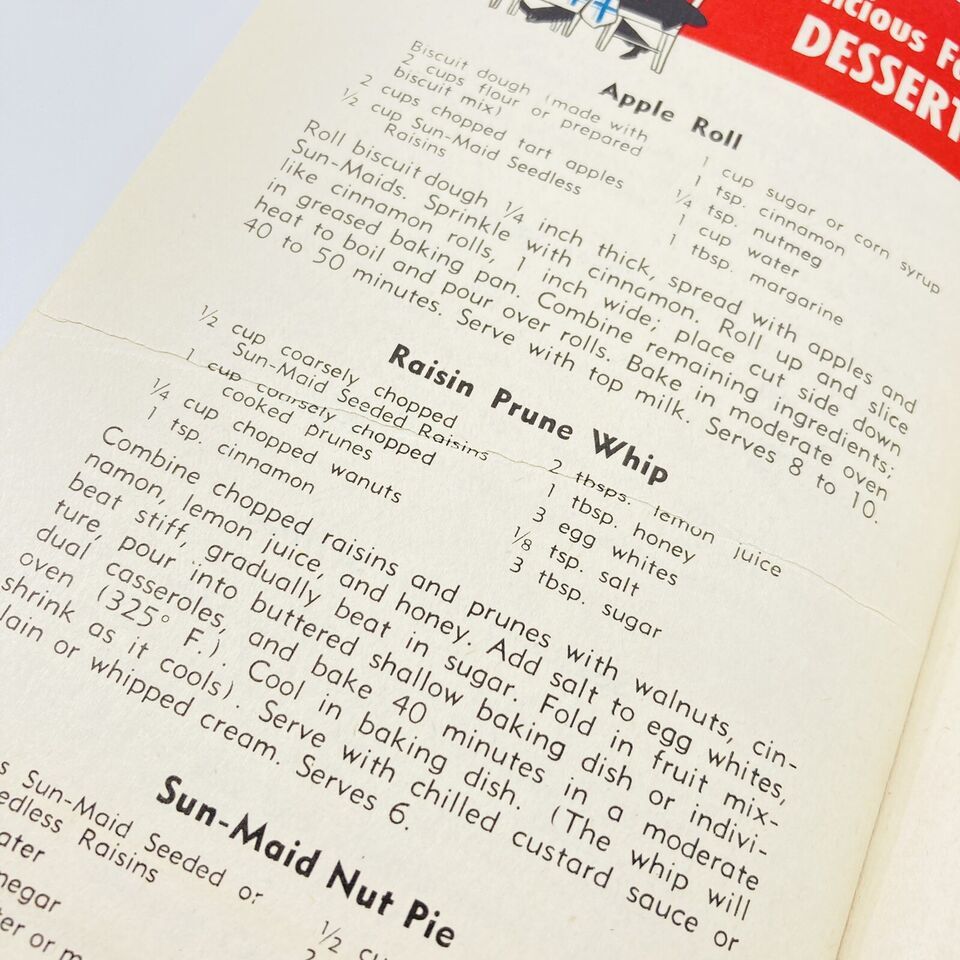 DESSERT
Apple Roll
Biscuit dough (made with
2 cups flour or prepared
biscuit mix)
2 cups chopped tart apples
½ cup Sun-Maid Seedless
Raisins
1 cup sugar or corn syrup
1 tsp. cinnamon
¼ tsp. nutmeg
1 cup water
1 tbsp. margarine
Roll biscuit dough ¼ inch thick, spread with apples and
Sun-Maids. Sprinkle with cinnamon. Roll up and slice
like cinnamon rolls, 1 inch wide; place cut side down
in greased baking pan. Combine remaining ingredients;
heat to boil and pour over rolls. Bake in moderate oven
40 to 50 minutes. Serve with top milk. Serves 8 to 10.
Raisin Prune Whip
½ cup coarsely chopped
Sun-Maid Seeded Raisins
1 cup coarsely chopped
cooked prunes
¼ cup chopped wanuts
1 tsp. cinnamon
2 tbsps. lemon juice
1 tbsp. honey
3 egg whites
⅛ tsp. salt
3 tbsp. sugar
Combine chopped raisins and prunes with walnuts, cin-
namon, lemon juice, and honey. Add salt to egg whites,
beat stiff, gradually beat in sugar. Fold in fruit mix-
ture, pour into buttered shallow baking dish or indivi-
dual casseroles, and bake 40 minutes in a moderate
oven (325° F.). Cool in baking dish. (The whip will
shrink as it cools). Serve with chilled custard sauce or
lain or whipped cream. Serves 6.
Sun-Maid Nut Pie
s Sun-Maid Seeded or
edless Raisins
ater
negar
ter or m
½ cu